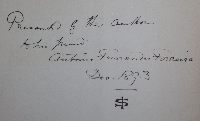 Presented by the author
to his friend
Antonio Fernandes Ferreira
Dec. 1893